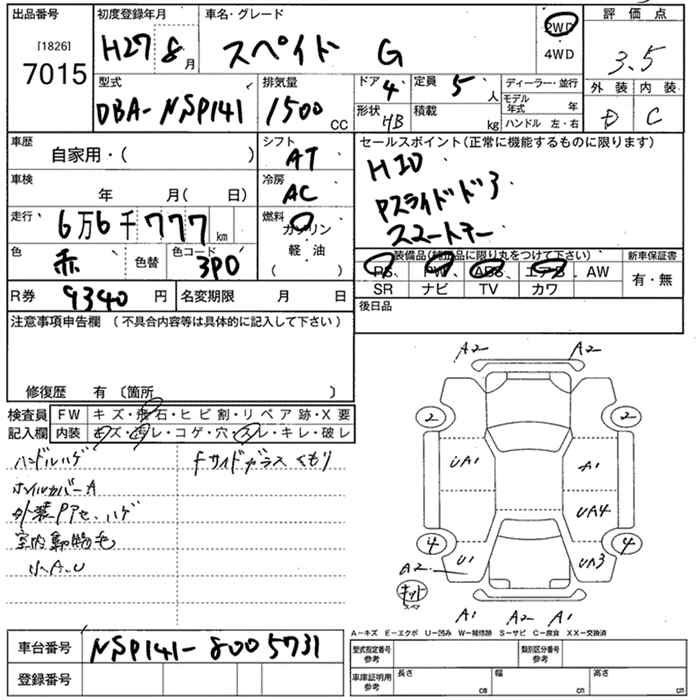 出品番号 初度登録年月 車名・グレード 2WD 評価点
[1826] H27 8月 スペイド G 4WD 3.5
7015 外装 内装
型式 排気量 ドア 4 定員 5人 ディーラー・並行 D C
DBA-NSP141 1500CC 形状 HB 積載 kg モデル年式 年
ハンドル 左・右
車歴 自家用・( ) シフト AT セールスポイント(正常に機能するものに限ります)
車検 年 月( 日) 冷房 AC HID
走行 6万6千777km 燃料 ガソリン Pスライドドア
軽・油 スマートキー
( )
色 赤 色替 色コード 3P0 装備品(純正品に限り丸をつけて下さい) 新車保証書
PS、PW、ABS、エアB、AW 有・無
R券 9340円 名変期限 月 日 SR ナビ TV カワ
後日品
注意事項申告欄(不具合内容等は具体的に記入して下さい)
修復歴 有〔箇所 〕
検査員 FW キズ・飛石・ヒビ割・リペア跡・X要
記入欄 内装 キズ・汚レ・コゲ・穴・スレ・キレ・破レ
ハンドルハゲ fサイドガラスくもり
ホイルカバーA
外装Pアセ、ハゲ
室内動物毛
小A.U
A2 A2
2 2
UA1 A1
UA4
4 4
A2 U1 UA3
キット
スペア
A1 A2 A1
A-キズ E-エクボ U-凹み W-補修跡 S-サビ C-腐食 XX-交換済
車台番号 NSP141-8005731 型式指定番号 参考 類別区分番号 参考
登録番号 車庫証明用 参考 長さ cm 幅 cm 高さ cm